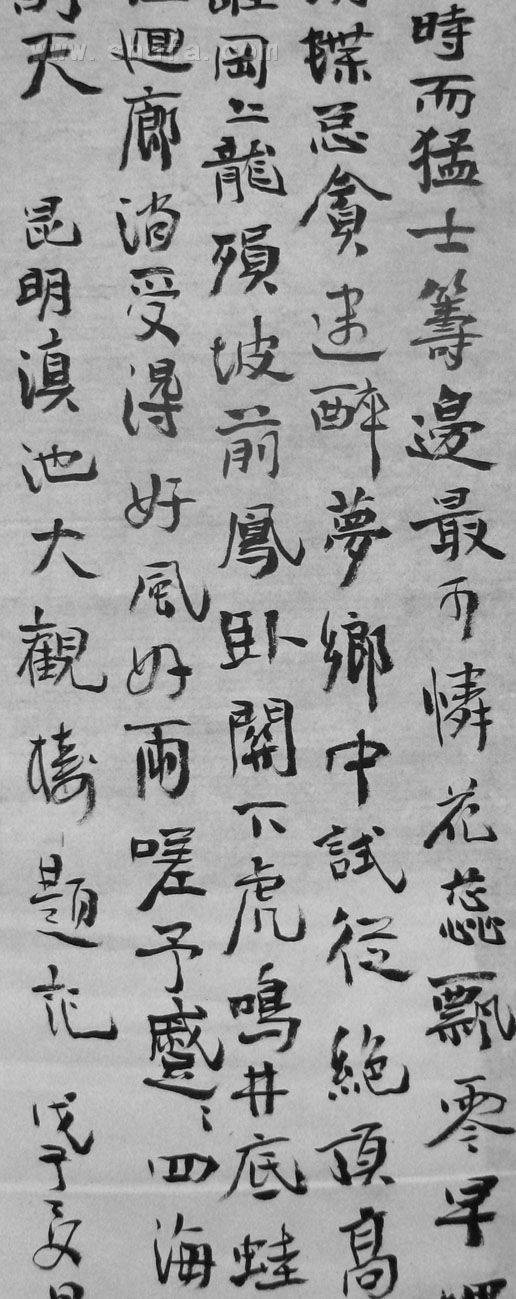 時而猛士籌邊最可憐花蕊飄零早
蝶总貪迷醉夢鄉中試從絕頂高
岡上龍殞坡前鳳臥關下虎鳴井底蛙
迴廊消受得好風好雨嗟予蹙々四海
天 昆明滇池大觀樓題記 戊子夏